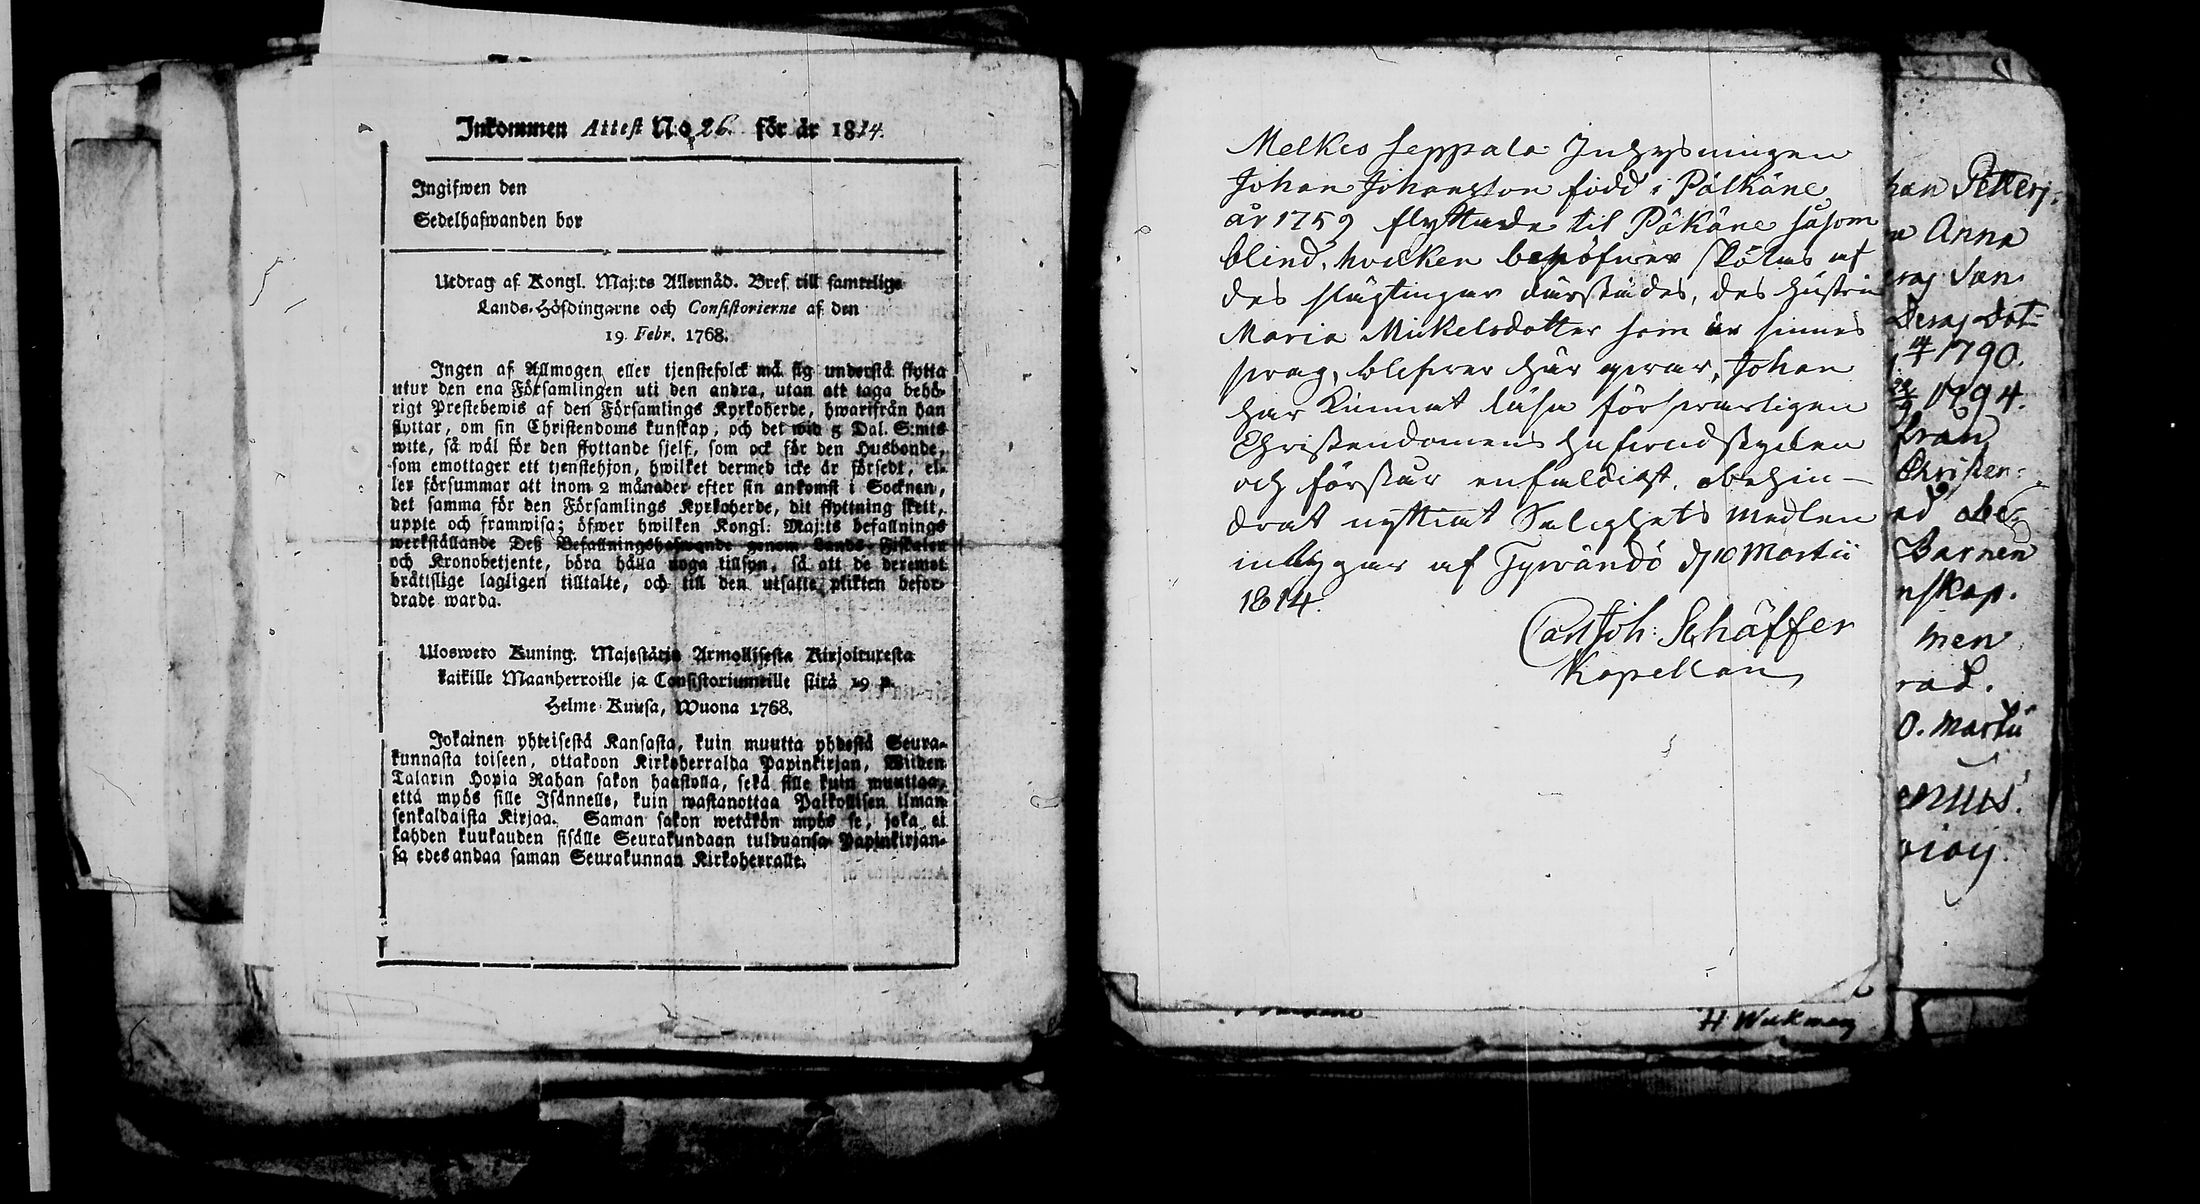 Inkommen Attest N:o 26. för år 1814.
Ingifwen den
Sedelhafwanden bor
Utdrag af Kongl. Maj:ts Allernåd. Bref till samtelige
Lands-Höfdingarne och Consistorierne af den
19 Febr. 1768.
Ingen af Allmogen eller tjenstefolck må sig understå flytta
utur den ena Församlingen uti den andra, utan att taga behö-
rigt Prestebewis af den Församlings Kyrkoherde, hwarifrån han
flyttar, om sin Christendoms kunskap, och det wid 5 Dal. S:mts
wite, så wäl för den flyttande sjelf, som ock för den Husbonde,
som emottager ett tjenstehjon, hwilket dermed icke är försedt, el-
ler försummar att inom 2 månader efter sin ankomst i Socknen,
det samma för den Församlings Kyrkoherde, dit flyttning skett,
uppte och framwisa; öfwer hwilken Kongl. Maj:ts befallnings
werkställande Deß Befallningshafwande genom Lands-Fiskalen
och Kronobetjente, böra hålla noga tillsyn, så att de deremot
bråttslige lagligen tilltalte, och till den utsatte plikten befor-
drade warda.
Ulosweto Kuning. Majestätin Armollisesta Kirjoituxesta
kaikille Maanherroille ja Consistoriumeille siitä 19 p.
Helme Kuusa, Wuona 1768.
Jokainen yhteisestä Kansasta, kuin muutta yhdestä Seura-
kunnasta toiseen, ottakoon Kirkoherralda Papinkirjan, Wiiden
Talarin Hopia Rahan sakon haastolla, sekä sille kuin muuttaa,
että myös sille Isännelle, kuin wastanottaa Palkollisen ilman
senkaldaista Kirjaa. Saman sakon wetäkön myös se, joka ei
kahden kuukauden sisälle Seurakundaan tulduansa Papinkirjan-
sa edesandaa saman Seurakunnan Kirkoherralle.
Melkio Seppala Inhysningen
Johan Johansson född i Pälkäne
år 1759 flyttade til Päkäne såsom
blind, hvilken behöfver skötas af
des slägtingar därstädes, des hustru
Maria Mickelsdotter som är sinnes
svag, blifver här qvar, Johan
har kunnat läsa försvarligen
Christendomens hufvudstycken
och förstår enfaldigt. obehin-
drat nyttiat Salighets medlen
intygar af Tyrvändö d. 10 Martii
1814.
Carl Joh: Schäffer
Kapellan
han Petters:
a Anna
ras Son
Deras Dot=
14/1 1790.
1794.
från
Christen=
ed obe=
Barnen
nskap.
men
rad.
0. Martii
H Wickman